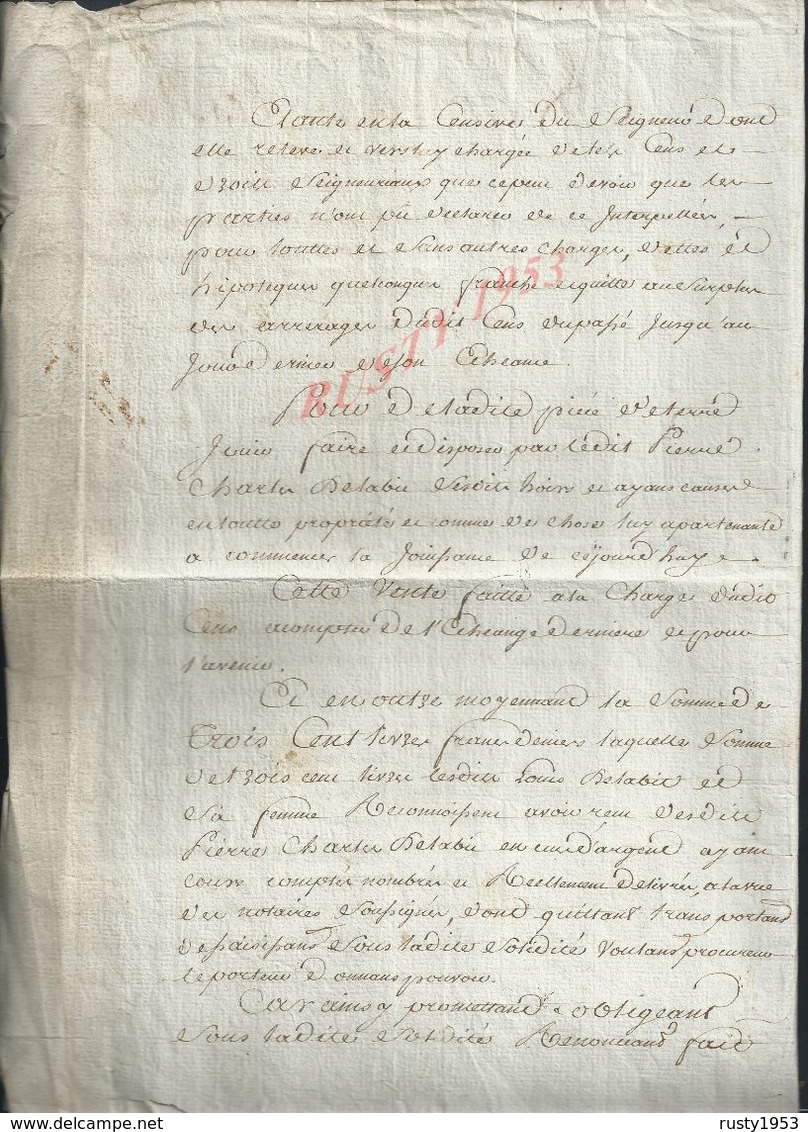 Etante en la Censive du Seigneur dont
elle releve et vers luy chargée de tels Cens et
droits Seigneuriaux que ce peut devoir que les
parties n'ont pu declarer de ce Interpellées,
pour touttes et sans autres charges, dettes et
hipoteques quelconques franche et quitte au Surplus
des arrerages dudit Cens du passé Jusqu'au
Jour dernier de son Echeance
Pour de ladite piece de terre
Jouir faire et disposer par ledit Pierre
Charles Delabie Sesdits hoirs et ayans cause
en toutte propriété et comme des choses luy apartenante
a commencer la Jouissance de cejourd'huy
Cette Vente faitte a la Charge dudit
Cens a compter de l'Echeange derniere et pour
l'avenir.
Et en outre moyennant la Somme de
Trois Cent livres francs deniers laquelle Somme
de trois cent livres lesdits Louis Delabie et
Sa femme Reconnoissent avoir reçu dudit
Pierre Charles Delabie en especes d'argent ayant
cours comptés nombrés et Reellement delivrés, a la vue
des notaires Soussignés, dont quittant transportant
dessaisissans Sous ladite Solidité Voulans procureur
le porteur donnans pouvoir.
Car ainsy promettant obligeant
Sous ladite Solidité Renonceant fait
RUSTY 1953
rusty1953
rusty1953